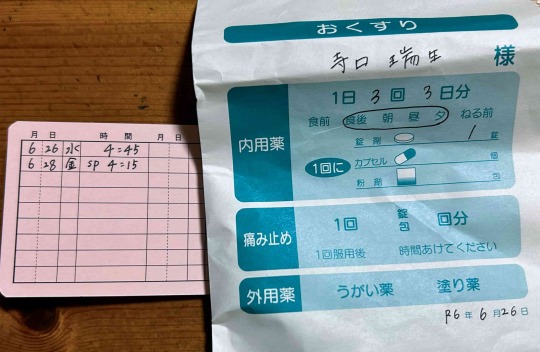 月 日 時 間 月 日
6 26 水 4=45
6 28 金 SP 4=15
おくすり
寺口 瑞生 様
1日 3 回 3 日分
食前 食後 朝 昼 夕 ねる前
内用薬
1回に
錠 剤 1 錠
カプセル 個
粉 剤 包
痛み止め
1回 錠 包 回分
1回服用後 時間あけてください
外用薬
うがい薬 塗り薬
R6 年 6 月 26 日